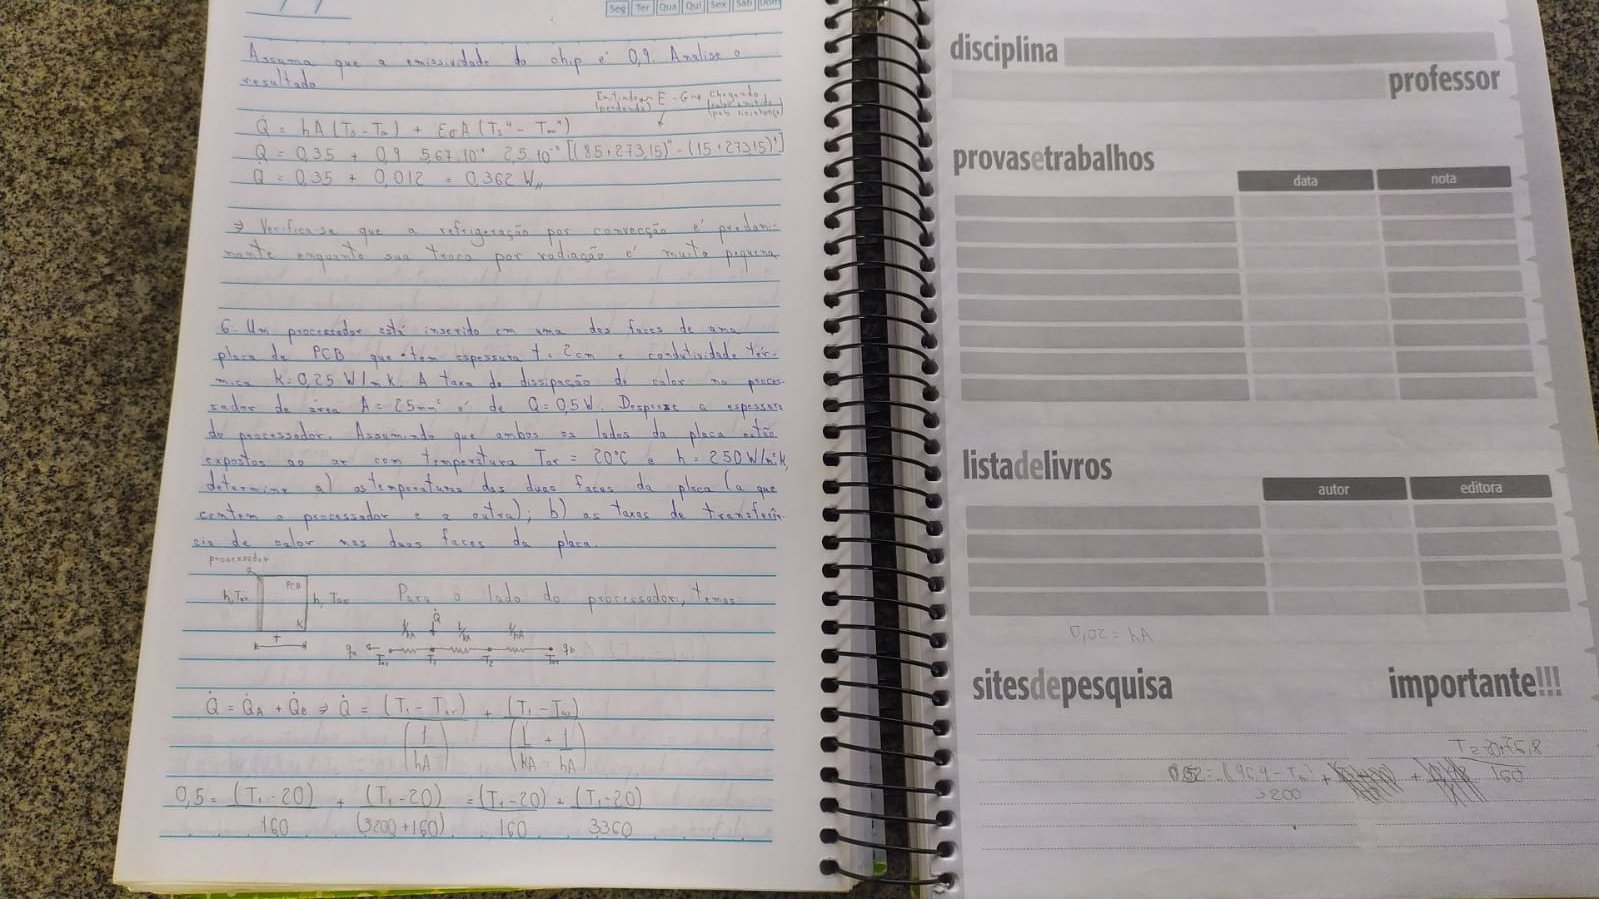 Seg Ter Qua Qui Sex Sáb Dom
Assuma que a emissividade do chip é 0,9. Analise o
resultado.
Emitindo E - G Chegando
(perdendo) (calor emitido
pela vizinhança)
Q̇ = hA(Ts - T∞) + εσA(Ts⁴ - T∞⁴)
Q̇ = 0,35 + 0,9 . 5,67.10⁻⁸ . 2,5.10⁻⁵ [(85+273,15)⁴ - (15+273,15)⁴]
Q̇ = 0,35 + 0,012 = 0,362 W
⇒ Verifica-se que a refrigeração por convecção é predomi-
nante enquanto sua troca por radiação é muito pequena
6. Um processador está inserido em uma das faces de uma
placa de PCB que tem espessura t = 2cm e condutividade tér-
mica k=0,25 W/mK. A taxa de dissipação de calor no proces-
sador de área A = 25mm² é de Q = 0,5W. Despreze a espessura
do processador. Assumindo que ambos os lados da placa estão
expostos ao ar com temperatura Tar = 20°C e h = 250 W/m²K,
determine a) as temperaturas das duas faces da placa (a que
contem o processador e a outra); b) as taxas de transferên-
cia de calor nas duas faces da placa.
processador
PCB
h, Tar h, Tar Para o lado do processador, temos:
k
t
1/hA Q̇ L/kA 1/hA
qa Tar T₁ T₂ Tar qb
Q̇ = Q̇A + Q̇B ⇒ Q̇ = (T₁ - Tar) + (T₁ - Tar)
(1/hA) (L/kA + 1/hA)
0,5 = (T₁-20) + (T₁-20) = (T₁-20) + (T₁-20)
160 (3200+160) 160 3360
disciplina
professor
provasetrabalhos
data nota
listadelivros
autor editora
sitesdepesquisa importante!!!